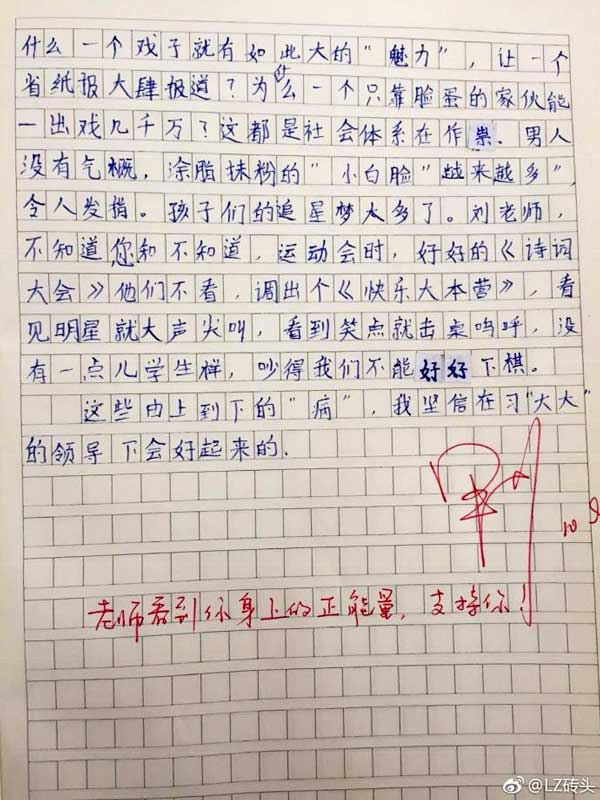 什么一个戏子就有如此大的“魅力”，让一个
省纸报大肆报道？为什么一个只靠脸蛋的家伙能
一出戏几千万？这都是社会体系在作祟．男人
没有气概，涂脂抹粉的“小白脸”越来越多”，
令人发指。孩子们的追星梦太多了。刘老师，
不知道您知不知道，运动会时，好好的《诗词
大会》他们不看，调出个《快乐大本营》，看
见明星就大声尖叫，看到笑点就击桌呜呼，没
有一点儿学生样，吵得我们不能好好下棋。
这些由上到下的“病”，我坚信在习“大大”
的领导下会好起来的．
老师看到你身上的正能量，支持你！
@LZ砖头